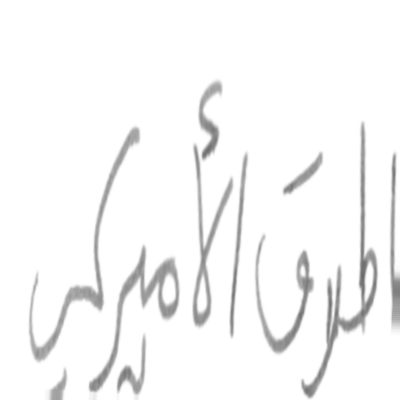 اطرق الأميركي